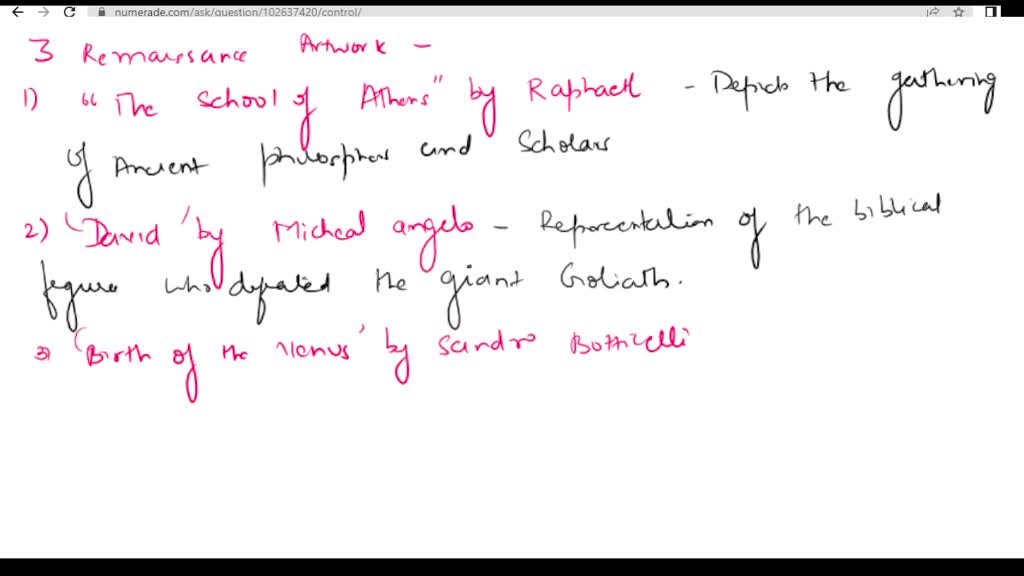 numerade.com/ask/question/102637420/control/
3 Remaissance Artwork -
1) "The School of Athens" by Raphael - Depicts the gathering
of Ancient philosphers and Scholars
2) 'David' by Micheal angelo - Representation of the biblical
figure who defeated the giant Goliath.
3) 'Birth of the Venus' by Sandro Botticelli